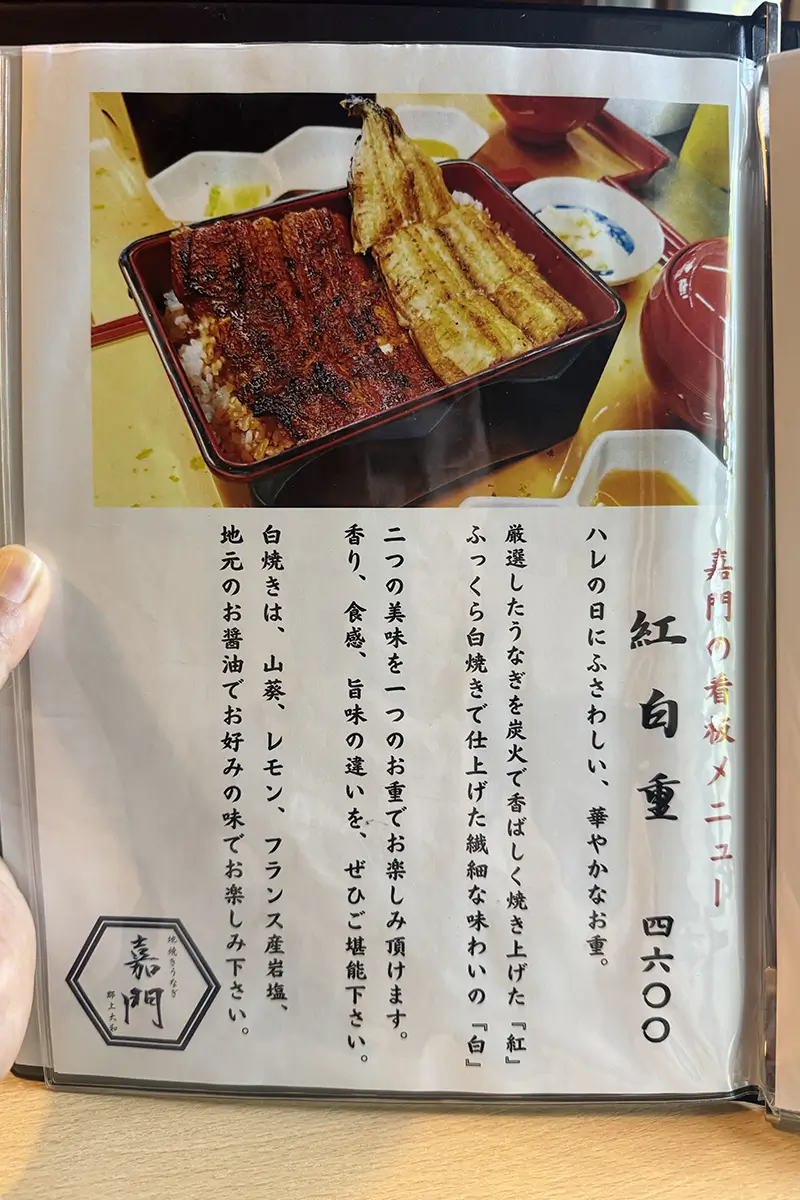 嘉門の看板メニュー
紅白重 四六〇〇
ハレの日にふさわしい、華やかなお重。
厳選したうなぎを炭火で香ばしく焼き上げた『紅』
ふっくら白焼きで仕上げた繊細な味わいの『白』
二つの美味を一つのお重でお楽しみ頂けます。
香り、食感、旨味の違いを、ぜひご堪能下さい。
白焼きは、山葵、レモン、フランス産岩塩、
地元のお醤油でお好みの味でお楽しみ下さい。
地焼きうなぎ
嘉門
郡上大和